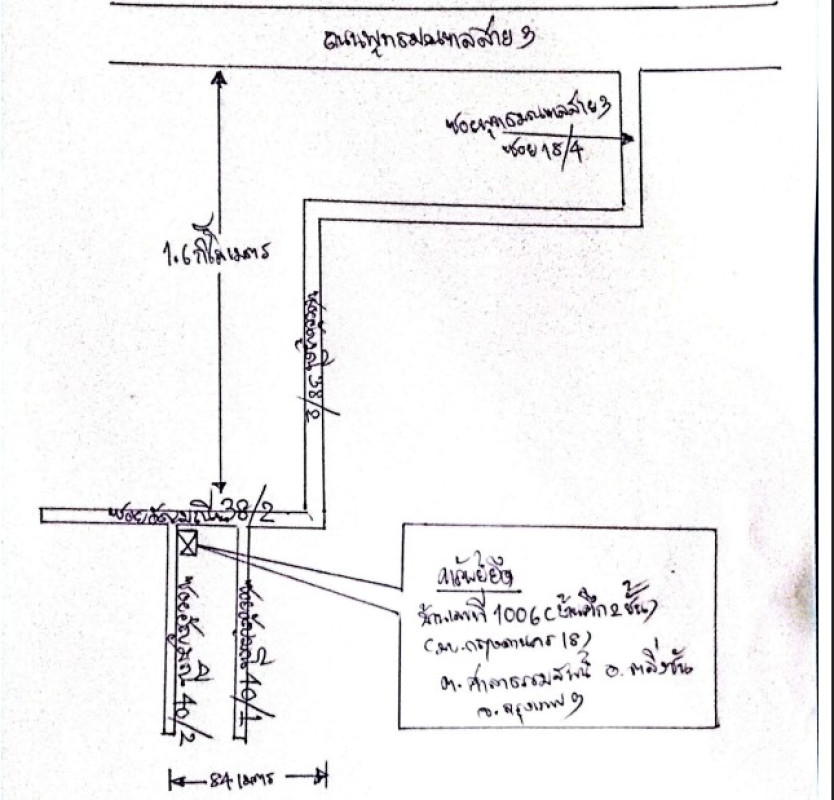 ถนนพุทธมณฑลสาย 3
ซอยพุทธมณฑลสาย 3
ซอย 18/4
1.6 กิโลเมตร
ซอยอัญมณี 38/2
ซอยอัญมณี 38/2
ซอยอัญมณี 40/2
ซอยอัญมณี 40/1
ทรัพย์ยึด
บ้านเลขที่ 1006 (บ้านตึก 2 ชั้น)
(มบ. กฤษดานคร 18)
ต. ศาลาธรรมสพน์ อ. ตลิ่งชัน
จ. กรุงเทพฯ
84 เมตร